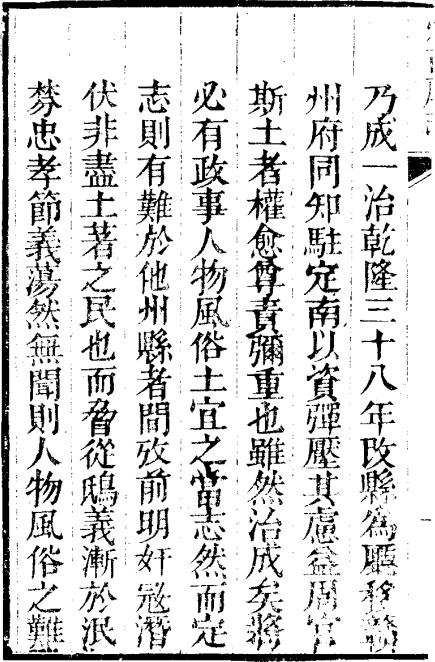 乃成一治乾隆三十八年改縣為廳移贛
州府同知駐定南以資彈壓其慮益周官
斯土者權愈尊責彌重也雖然治成矣將
必有政事人物風俗土宜之當志然而定
志則有難於他州縣者間攷前明奸寇潛
伏非盡土著之民也而脅從鴟義漸於泯
棼忠孝節義蕩然無聞則人物風俗之難